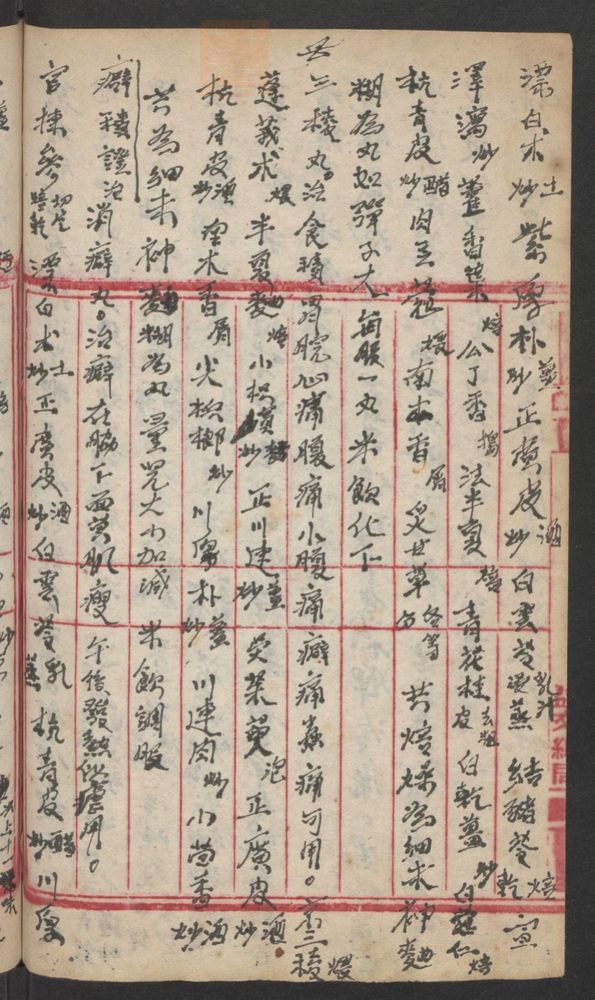 漂白朮土炒 紫厚朴薑炒 正廣皮酒炒 白雲苓乳汁浸蒸 結豬苓焙乾 宣
澤瀉炒 藿香葉焙 公丁香搗 法半夏焙 青花桂去粗皮 白乾薑炒 白蔻仁焙
杭青皮醋炒 肉豆蔻煨 南木香屑 炙甘草各等分 共焙燥為細末 神麯
糊為丸如彈子大 每服一丸米飲化下
共三稜丸。治食積胃脘心痛腹痛小腹痛癖痛蟲痛可用。京三稜煨
蓬莪朮煨 半夏麯焙 小枳實麩炒 正川連薑炒 吳茱萸泡 正廣皮酒炒
杭青皮酒炒 木香屑 尖檳榔炒 川厚朴薑炒 川連肉炒 小茴香酒炒
共為細末神麯糊為丸量兒大小加減 米飲調服
癖積證治消癖丸。治癖在脇下面黃肌瘦 午後發熱似瘧用。
官揀參切片焙乾 漂白朮土炒 正廣皮酒炒 白雲苓乳蒸 杭青皮醋炒 川厚